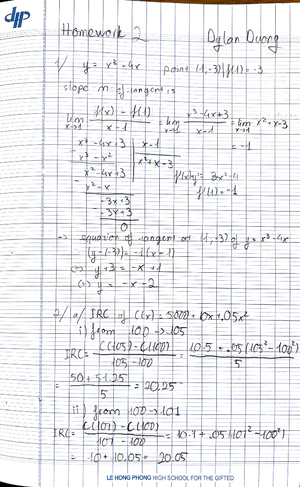 dlp
Homework 2 Dylan Duong
1/ y = x³ - 4x point (1, -3) | f(1) = -3
slope m of tangent is
lim x→1 f(x) - f(1) / x - 1 = lim x→1 x³ - 4x + 3 / x - 1 = lim x→1 x² + x - 3
= -1
x³ - 4x + 3 | x - 1
x³ - x² | x² + x - 3
x² - 4x + 3
x² - x
f'(x) = 3x² - 4
f'(1) = -1
-3x + 3
-3x + 3
0
=> equation of tangent at (1, -3) of y = x³ - 4x
(y - (-3)) = -1(x - 1)
(=) y + 3 = -x + 1
(=) y = -x - 2
2/ a/ IRC of C(x) = 5000 + 10x + .05x²
i) from 100 → 105
IRC = C(105) - C(100) / 105 - 100 = 10.5 + .05(105² - 100²) / 5
= 50 + 51.25 / 5 = 20.25
ii) from 100 → 101
IRC = C(101) - C(100) / 101 - 100 = 10.1 + .05(101² - 100²)
= 10 + 10.05 = 20.05
LE HONG PHONG HIGH SCHOOL FOR THE GIFTED